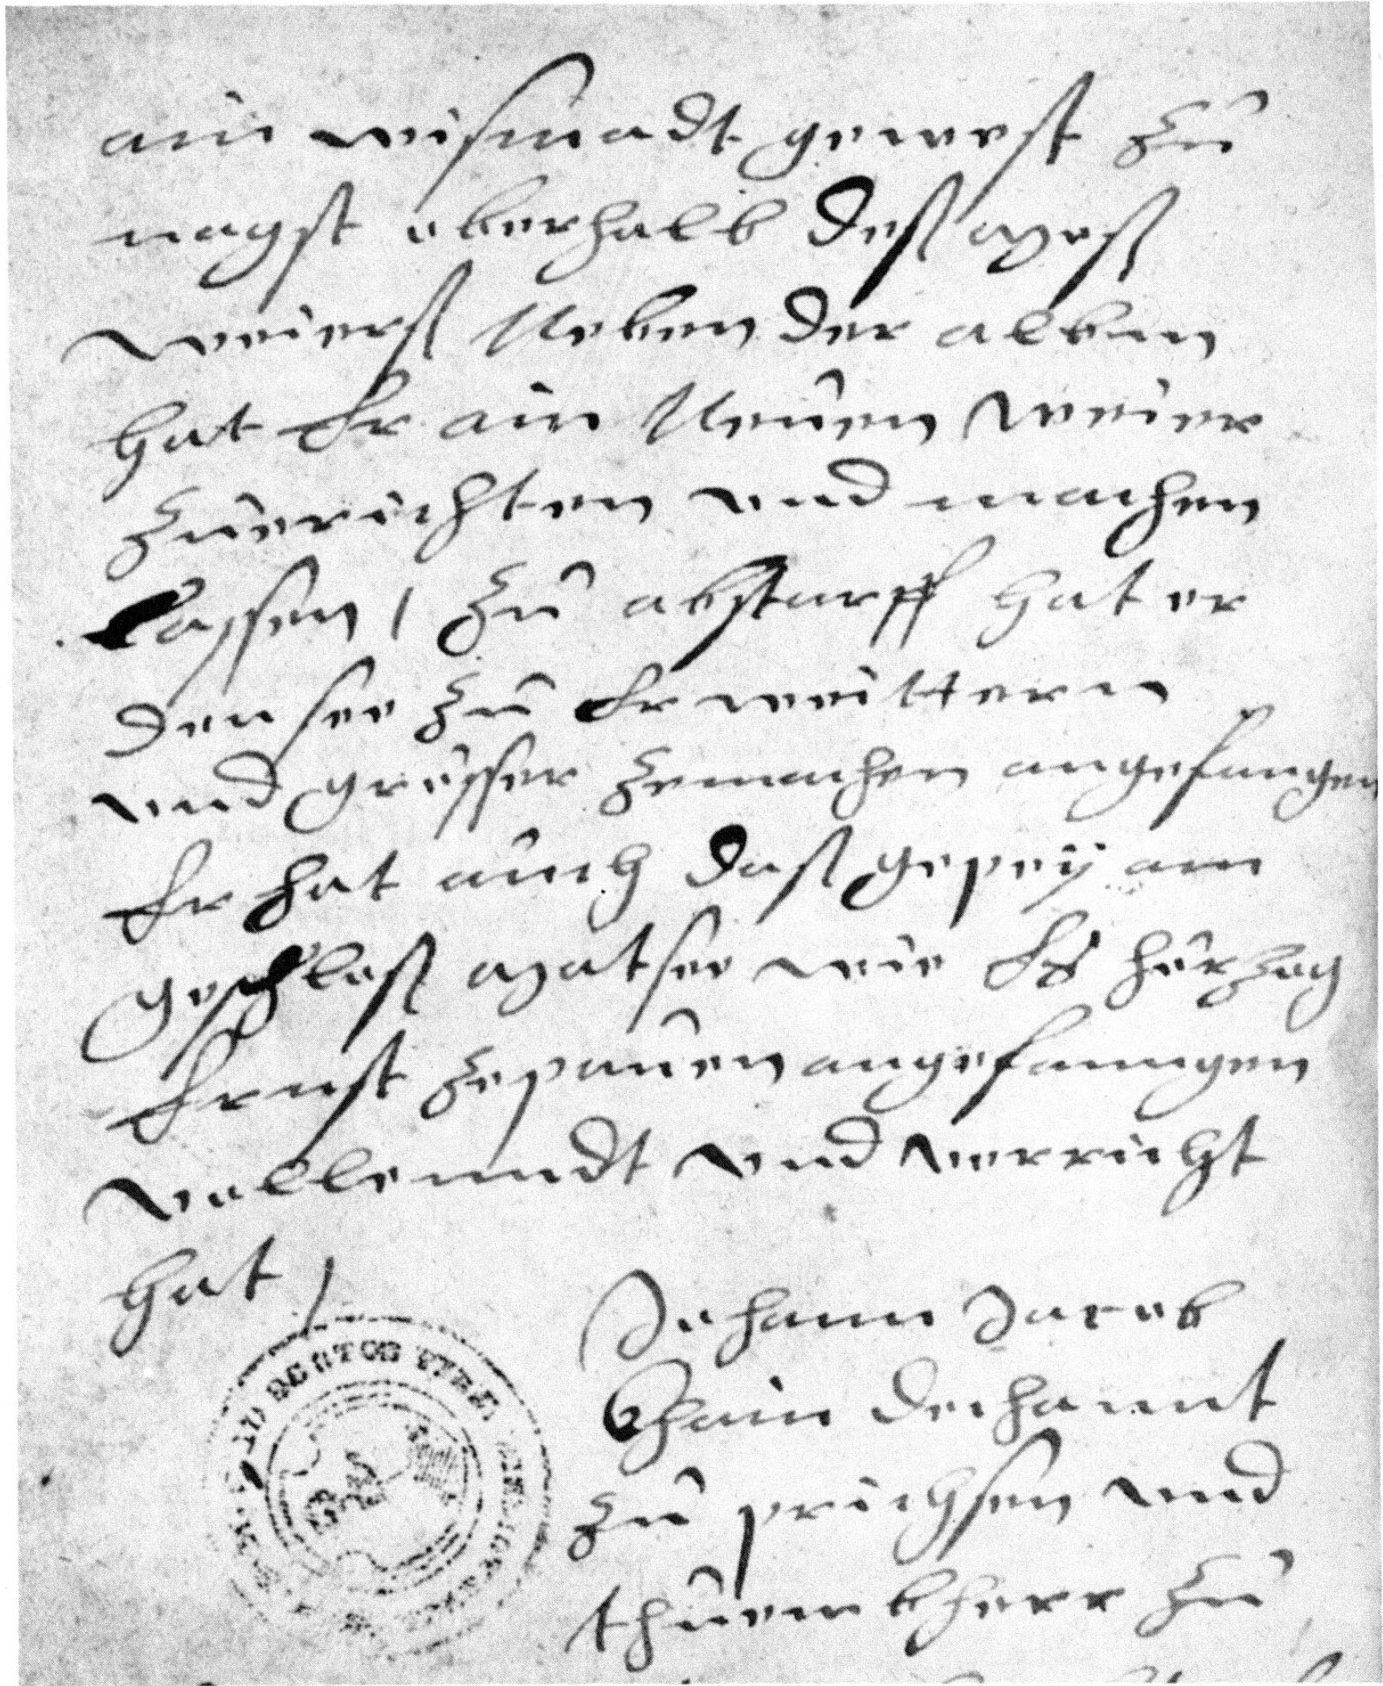 ain wismadt gewest zů
nagst oberhalb deß moß
weierß Neben der alben
hat Er ain Neuen weier
zuerichten und machen
lassen / zů abstorff hat er
den see zů Erweittern
und grosser zemachen angefangen
Er hat auch daß gepeÿ am
geschloß matsee wie Es herzog
Ernst zepauen angefanngen
vollenndt und verricht
hat /
Johann Jacob
Khain dechannt
zů prichsen und
thuembherr zů